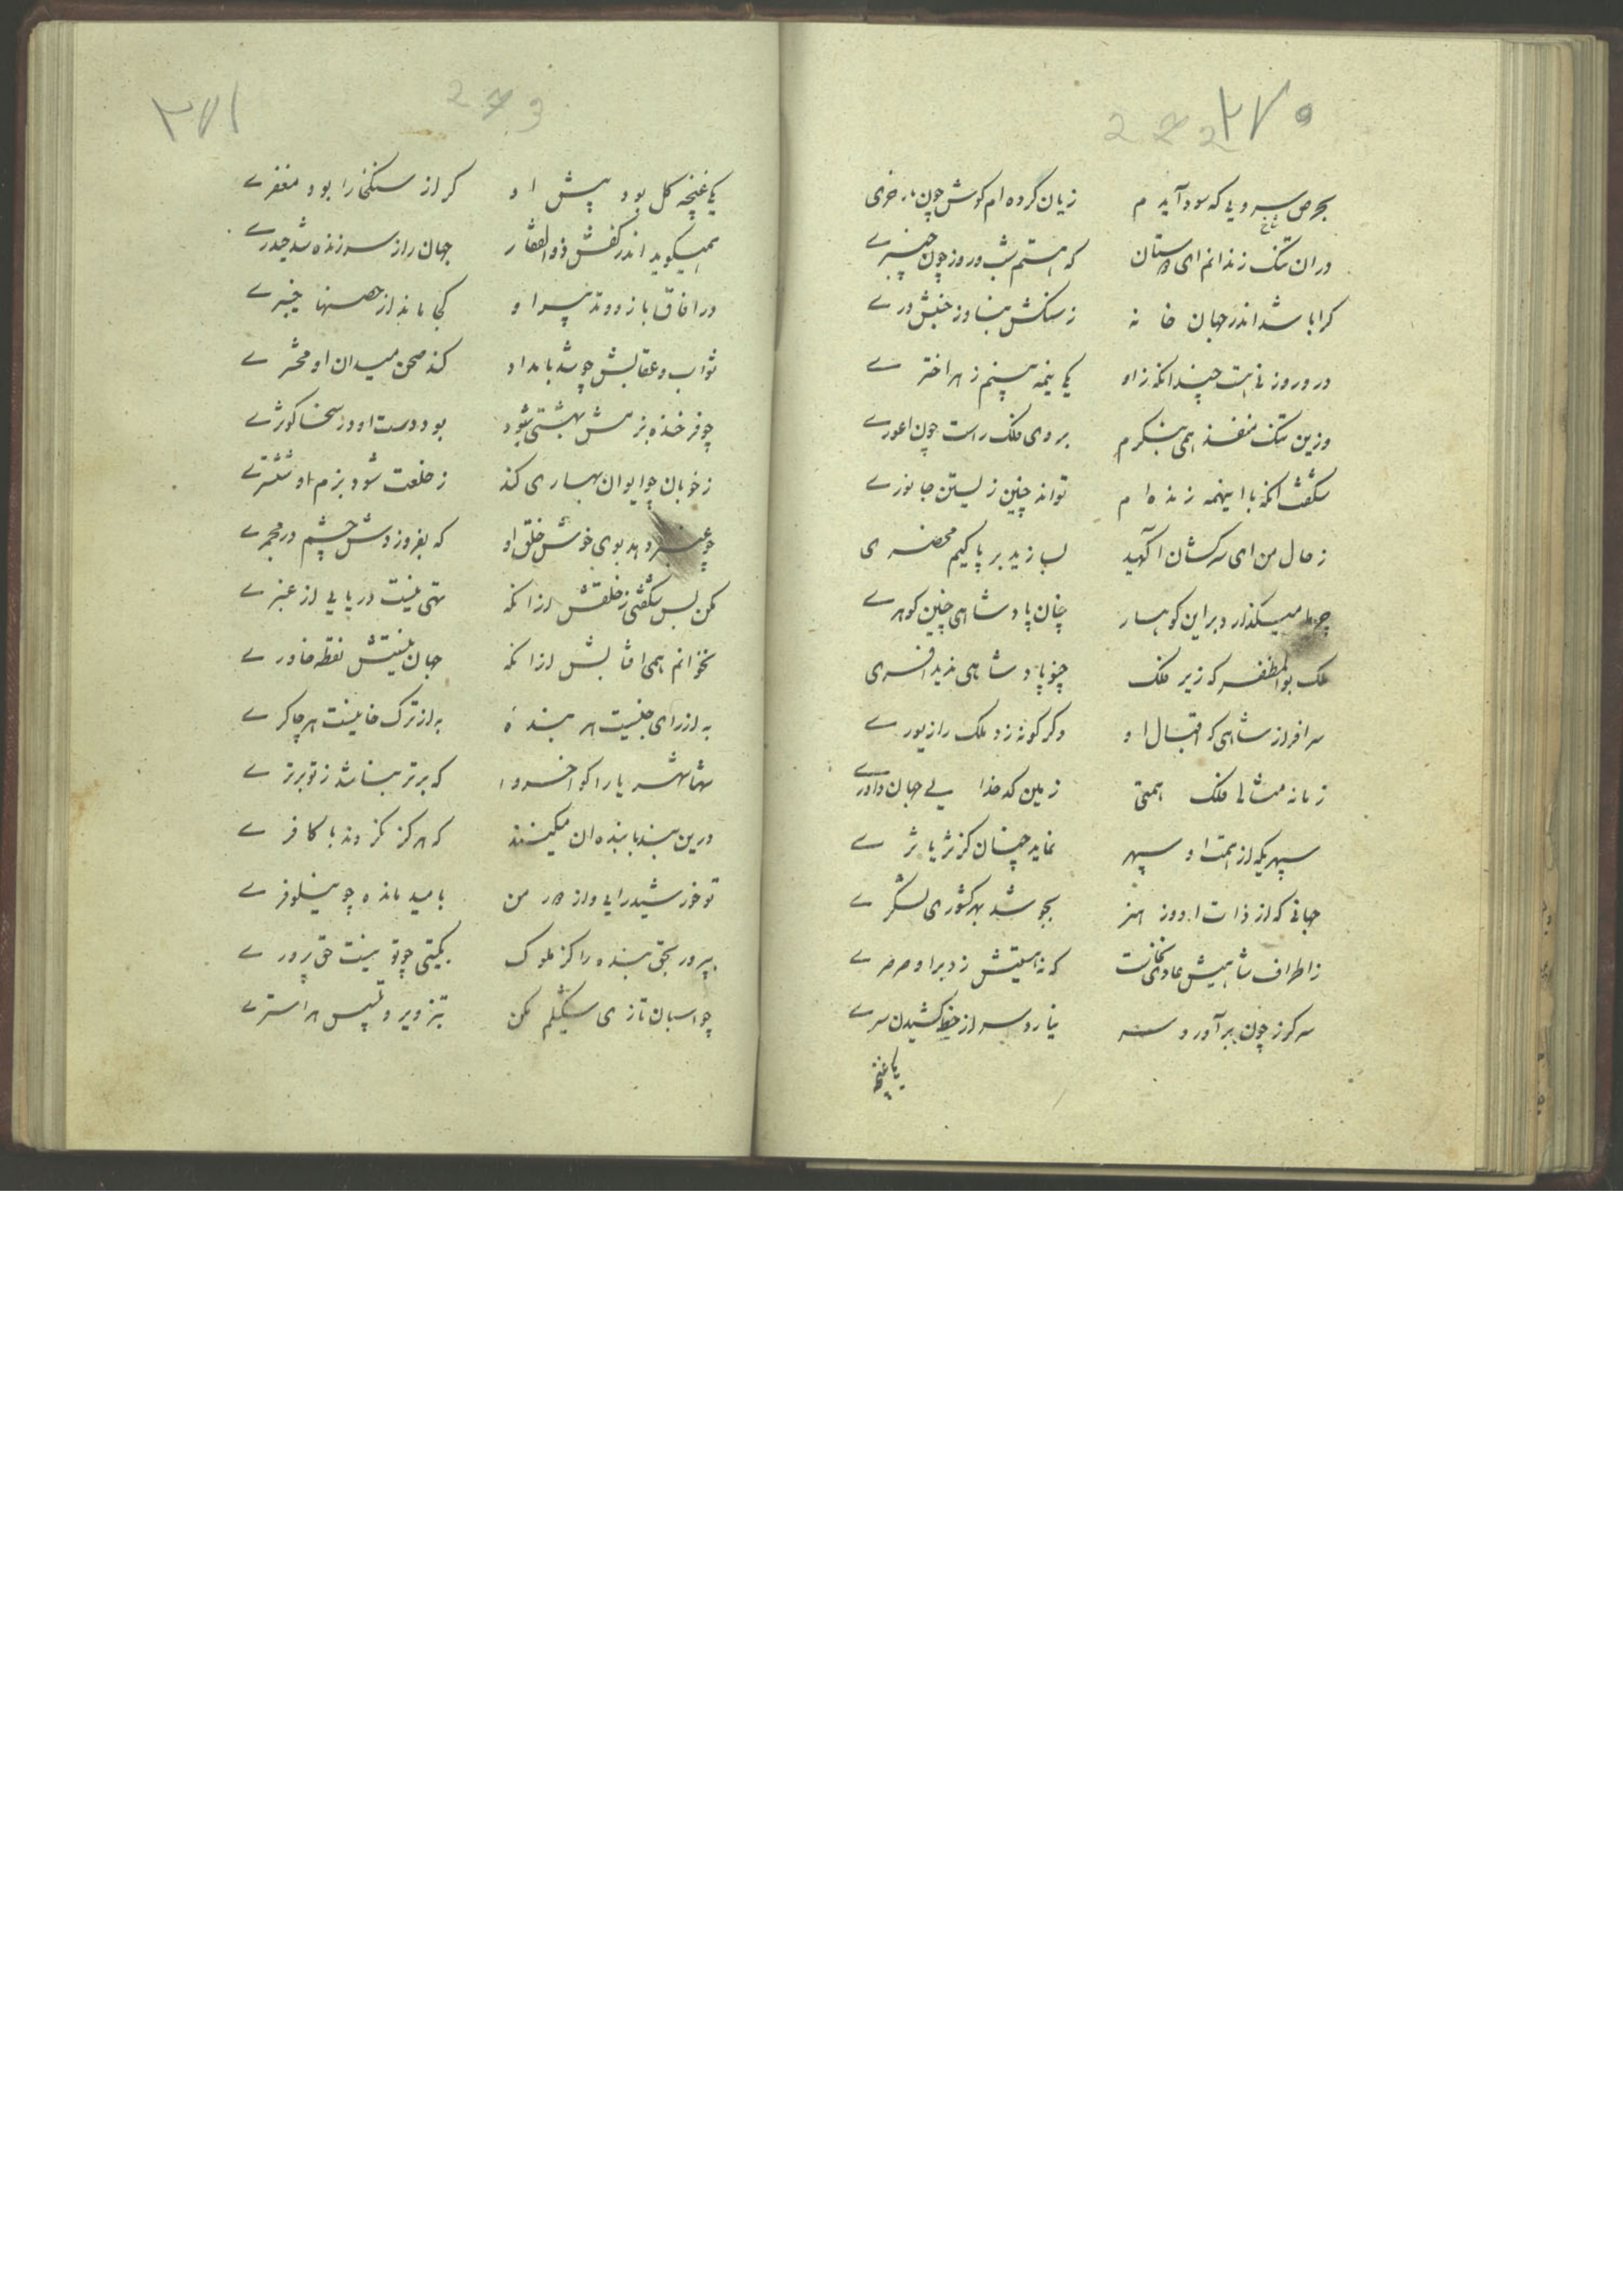 ۲۷۰
272
بحرص سرویی که سود آیدم زیان کرده ام کوش چون خری
شاخ
در ان تنک زندانم ای دوستان که هستم شب و روز چون چنبرے
کرا باشد اندر جهان خانه ز سنکش بنا و ز خشتش درے
درو روزنی هست چندانکه زو یکی نیمه بینم ز هر اخترے
وزین تنک منفذ همی بنکرم بروی فلک راست چون اعورے
شکفت انکه با اینهمه زنده ام تواند چنین زیستن جانورے
ز حال من ای سرکشان آکهید بسازید بر پاکیم محضری
چرا میکذارد برین کوهسار چنان پادشاهی چنین کوهرے
ملک بوالمظفر که زیر فلک چنو پادشاهی ندید افسری
سرافراز شاهی که اقبال او دکر کونه زد ملک را زیورے
زمانه مثالی فلک همتی زمین کدخدایی جهان داورے
سپهریکه از همت او سپهر نماید چنان کز ثریا ثرے
جهانی که از ذات او روز هنر بجوشد بهر کشوری لشکرے
ز اطراف شاهیش عادی نخاست که نه هیبتش زد برو صرصرے
سر کرز چون بر آورد سنه نیارد سر از خط کشیدن سرے
یکی غنچه
۲۷۱
273
یکی غنچه کل بود پیش او کر از سنک خارا بود مغفرے
همیکوید اندر کفش ذوالفقار جهان را ز سر زنده شد حیدرے
در افاق با زور و تدبیر او کجا ماند از حصنها خیبرے
ثواب و عقابش چو شد بامداد کند صحن میدان او محشرے
چو فرخنده بزمش بهشتی شود بود دست او در سخا کوثرے
ز خوبان چو ایوان بهاری کند ز خلعت شود بزم او ششترے
چو عنبر دهد بوی خوش خلق او که بفروزدش خشم در مجمرے
مکن بس شکفتی ز خلقش از انکه تهی نیست دریایی از عنبرے
نخوانم همی افتابش از انکه جهان نیستش نقطه خاورے
به از رای جیست هر بنده به از ترک خانیست هر چاکرے
شها شهریارا کوا خسروا که برتر نباشد ز تو برترے
درین بند با بنده ان میکنند که هرکز نکردند با کافرے
تو خورشید رایی و از دور من بامید مانده چو نیلوفرے
بپرور بحق بنده را کز ملوک بکیتی چو تو نیست حق پرورے
چو اسبان تازی شکیلم مکن بتزویر و تلبیس هر استرے